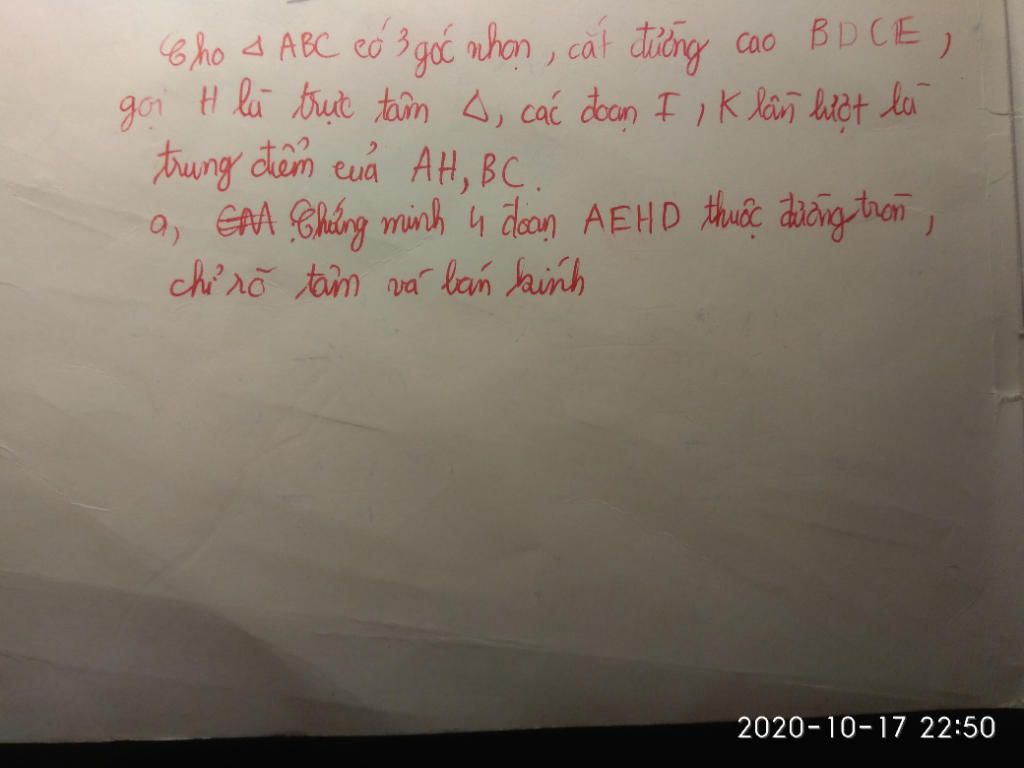 Cho Δ ABC có 3 góc nhọn, cắt đường cao BD CE,
gọi H là trực tâm Δ, các đoạn I, K lần lượt là
trung điểm của AH, BC.
a, CM Chứng minh 4 đoạn AEHD thuộc đường tròn,
chỉ rõ tâm và bán kính
2020-10-17 22:50